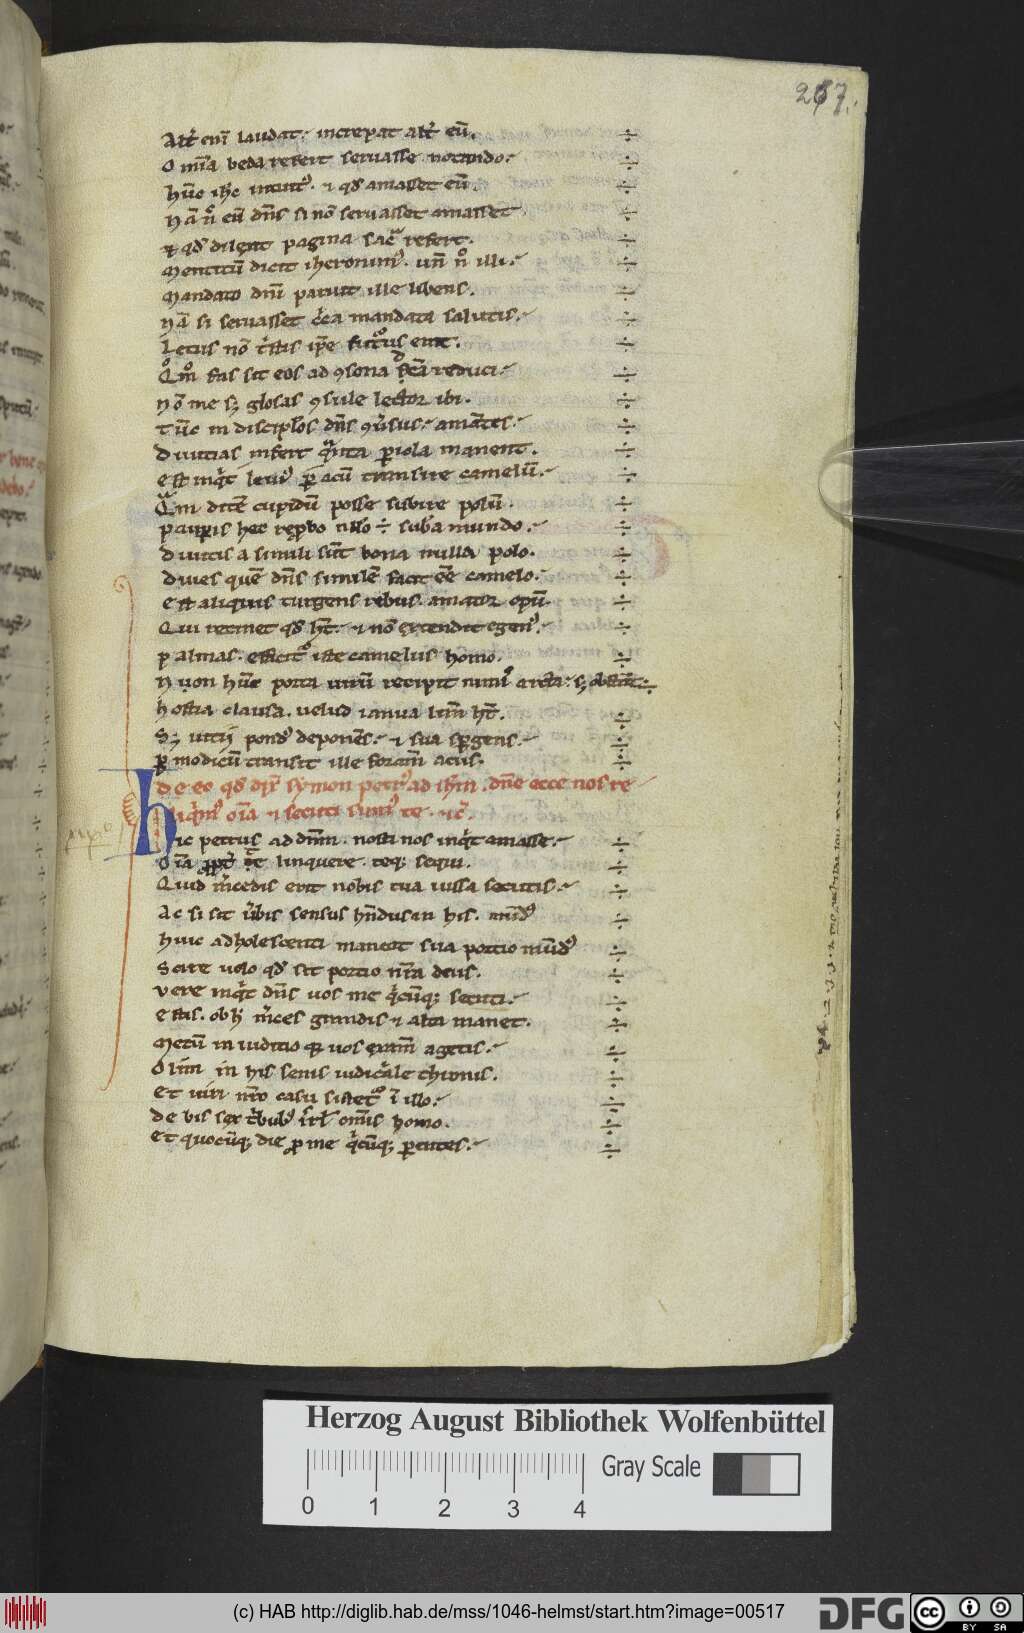 267.
Alt̄ eni laudat. increpat alt̄ eū.
O mīa beda refert seruasse notando.
hūc ihc intuit᷒. ⁊ qd amasset eū.
Nā n̄ eū dn̄s si nō seruasset amasset
⁊ qd dilexit pagina sac̄ refert.
Mentitū dicit iheronim᷒. un̄ n̄ illi.
Mandato dn̄i paruit ille libens.
Nā si seruasset mandata salutis.
Letus nō t̄stis ip̄e fuit.
fas sit eos ad ꝯsona reduci.
Nō me sꝫ glosas ꝯsule lector ibi.
Tūc in discipl̄os dn̄s ꝯu̇sus. amātes.
Diuitias infert manent.
Est inqͥt leui᷒ acū transire camelū.
cupidū posse subire polū.
Paupis hec ÷ mundo.
Diuitis a simili sūt bona nulla polo.
Diues quē dn̄s similē facit eē camelo.
Est aliquis turgens rebus. amator opū.
Qui retinet qd hēt. ⁊ nō extendit egen᷒.
Palmas. efficit᷒ iste camelus homo.
Non hūc porta uirū recipit nimi᷒ arta. sꝫ obstāt.
hostia clausa. uelud ianua hēt.
Sꝫ uitii pond᷒ deponēs. ⁊ sua sp̄gens.
ꝑ modicū transit ille foramē acus.
De eo qd dix̄ symon petr᷒ ad ihm. dn̄e ecce nos re
liqͥm᷒ oīa ⁊ secuti sum᷒ te. ⁊c̄.
hic petrus ad dnm. nosti nos inqͥt amasse.
Oīa linquere. teqꝫ sequi.
Quid m̄cedis erit nobis tua iussa secutis.
Ac si sit u̇bis sensus hn̄dus in his.
huic adholescenti maneat sua portio
Scire uolo qd sit portio nr̄a deus.
Vere inqͥt dn̄s uos me qͥcūqꝫ secuti.
Estis. ob h̄ m̄ces grandis ⁊ alta manet.
Metū in iuditio uos exam̄ agetis.
Olim in his senis thronis.
Et uiri nr̄o casu sistet᷒ ī illo.
De bis sex t̄bub᷒ isrl̄ om̄is homo.
Et quocūqꝫ die ꝓ me qͥcūqꝫ
Herzog August Bibliothek Wolfenbüttel
Gray Scale
0 1 2 3 4
(c) HAB http://diglib.hab.de/mss/1046-helmst/start.htm?image=00517
DFG
cc
BY SA